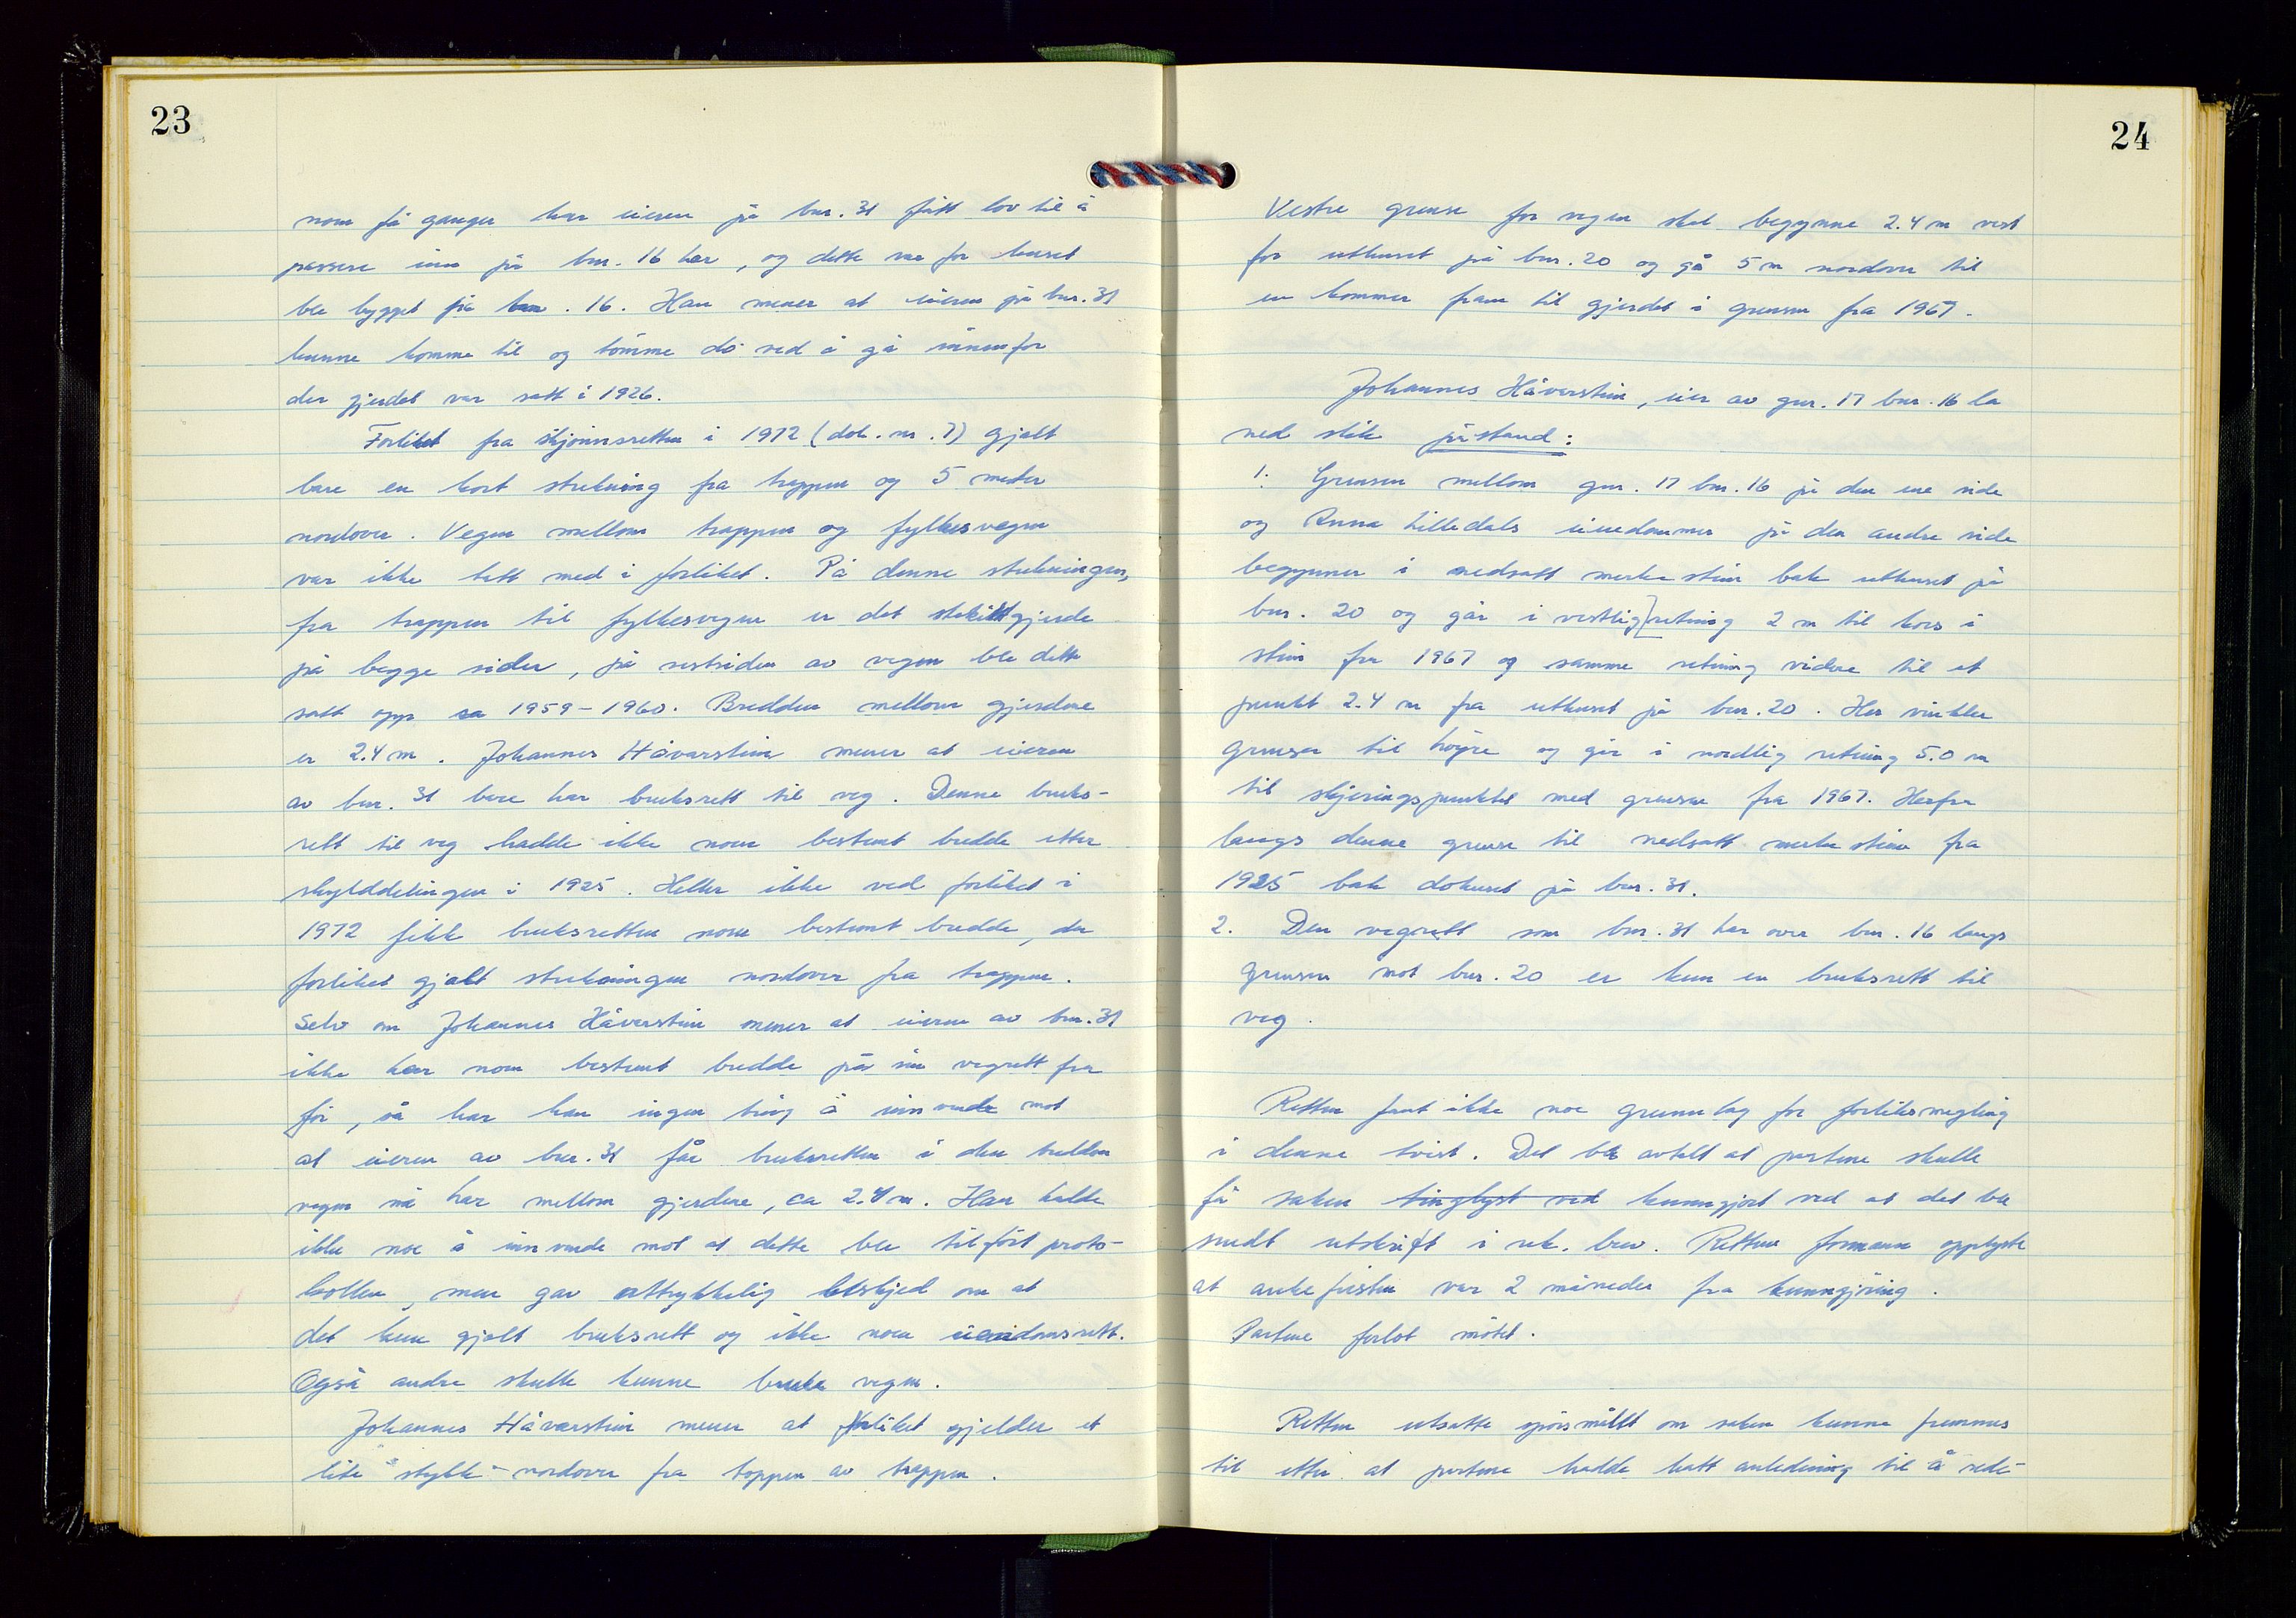 23
noen få ganger har eieren på bnr. 31 fått lov til å
passere inn på bnr. 16 her, og dette var for huset
ble bygget på bnr. 16. Han mener at eieren på bnr. 31
kunne komme til og tömme do ved å gå innenfor
der gjerdet var satt i 1926.
Forliket fra skjønnsretten i 1972 (dok. nr. 7) gjalt
bare en kort strekning fra trappen og 5 meter
nordover. Vegen mellom trappen og fylkesvegen
var ikke tatt med i forliket. På denne strekningen,
fra trappen til fylkesvegen er det stakittgjerde
på begge sider, på vestsiden av vegen ble dette
satt opp ca 1959-1960. Bredden mellom gjerdene
er 2.4 m. Johannes Håvarstein mener at eieren
av bnr. 31 bare har bruksrett til veg. Denne bruks-
rett til veg hadde ikke noen bestemt bredde etter
skylddelingen i 1925. Heller ikke ved forliket i
1972 fikk bruksretten noen bestemt bredde, da
forliket gjalt strekningen nordover fra trappen.
Selv om Johannes Håvarstein mener at eieren av bnr. 31
ikke har noen bestemt bredde på sin vegrett fra
för, så har han ingen ting å innvende mot
at eieren av bnr. 31 får bruksretten i den bredden
vegen nå har mellom gjerdene, ca 2.4 m. Han hadde
ikke noe å innvende mot at dette ble tilfört proto-
kollen, men gav uttrykkelig beskjed om at
det kun gjalt bruksrett og ikke noen eiendomsrett.
Også andre skulle kunne bruke vegen.
Johannes Håvarstein mener at forliket gjelder et
lite stykke nordover fra toppen av trappen.
24
Vestre grense for vegen skal begynne 2.4 m vest
for uthuset på bnr. 20 og gå 5 m nordover til
en kommer fram til gjerdet i grensen fra 1967.
Johannes Håvarstein, eier av gnr. 17 bnr. 16 la
ned slik påstand:
1. Grensen mellom gnr. 17 bnr. 16 på den ene side
og Anna Lilledals eiendommer på den andre side
begynner i nedsatt merkestein bak uthuset på
bnr. 20 og går i vestlig retning 2 m til kors i
stein fra 1967 og samme retning videre til et
punkt 2.4 m fra uthuset på bnr. 20. Her vinkler
grensen til höyre og går i nordlig retning 5.0 m
til skjeringspunktet med grensen fra 1967. Herfra
langs denne grense til nedsatt merkestein fra
1925 bak dohuset på bnr. 31.
2. Den vegrett som bnr. 31 har over bnr. 16 langs
grensen mot bnr. 20 er kun en bruksrett til
veg.
Retten fant ikke noe grunnlag for forliksmegling
i denne tvist. Det ble avtalt at partene skulle
få saken tinglyst ved kunngjort ved at det ble
sendt utskrift i rek. brev. Rettens formann opplyste
at ankefristen var 2 måneder fra kunngjöring.
Partene forlot mötet.
Retten utsatte spörsmålet om saken kunne fremmes
til etter at partene hadde hatt anledning til å rede-